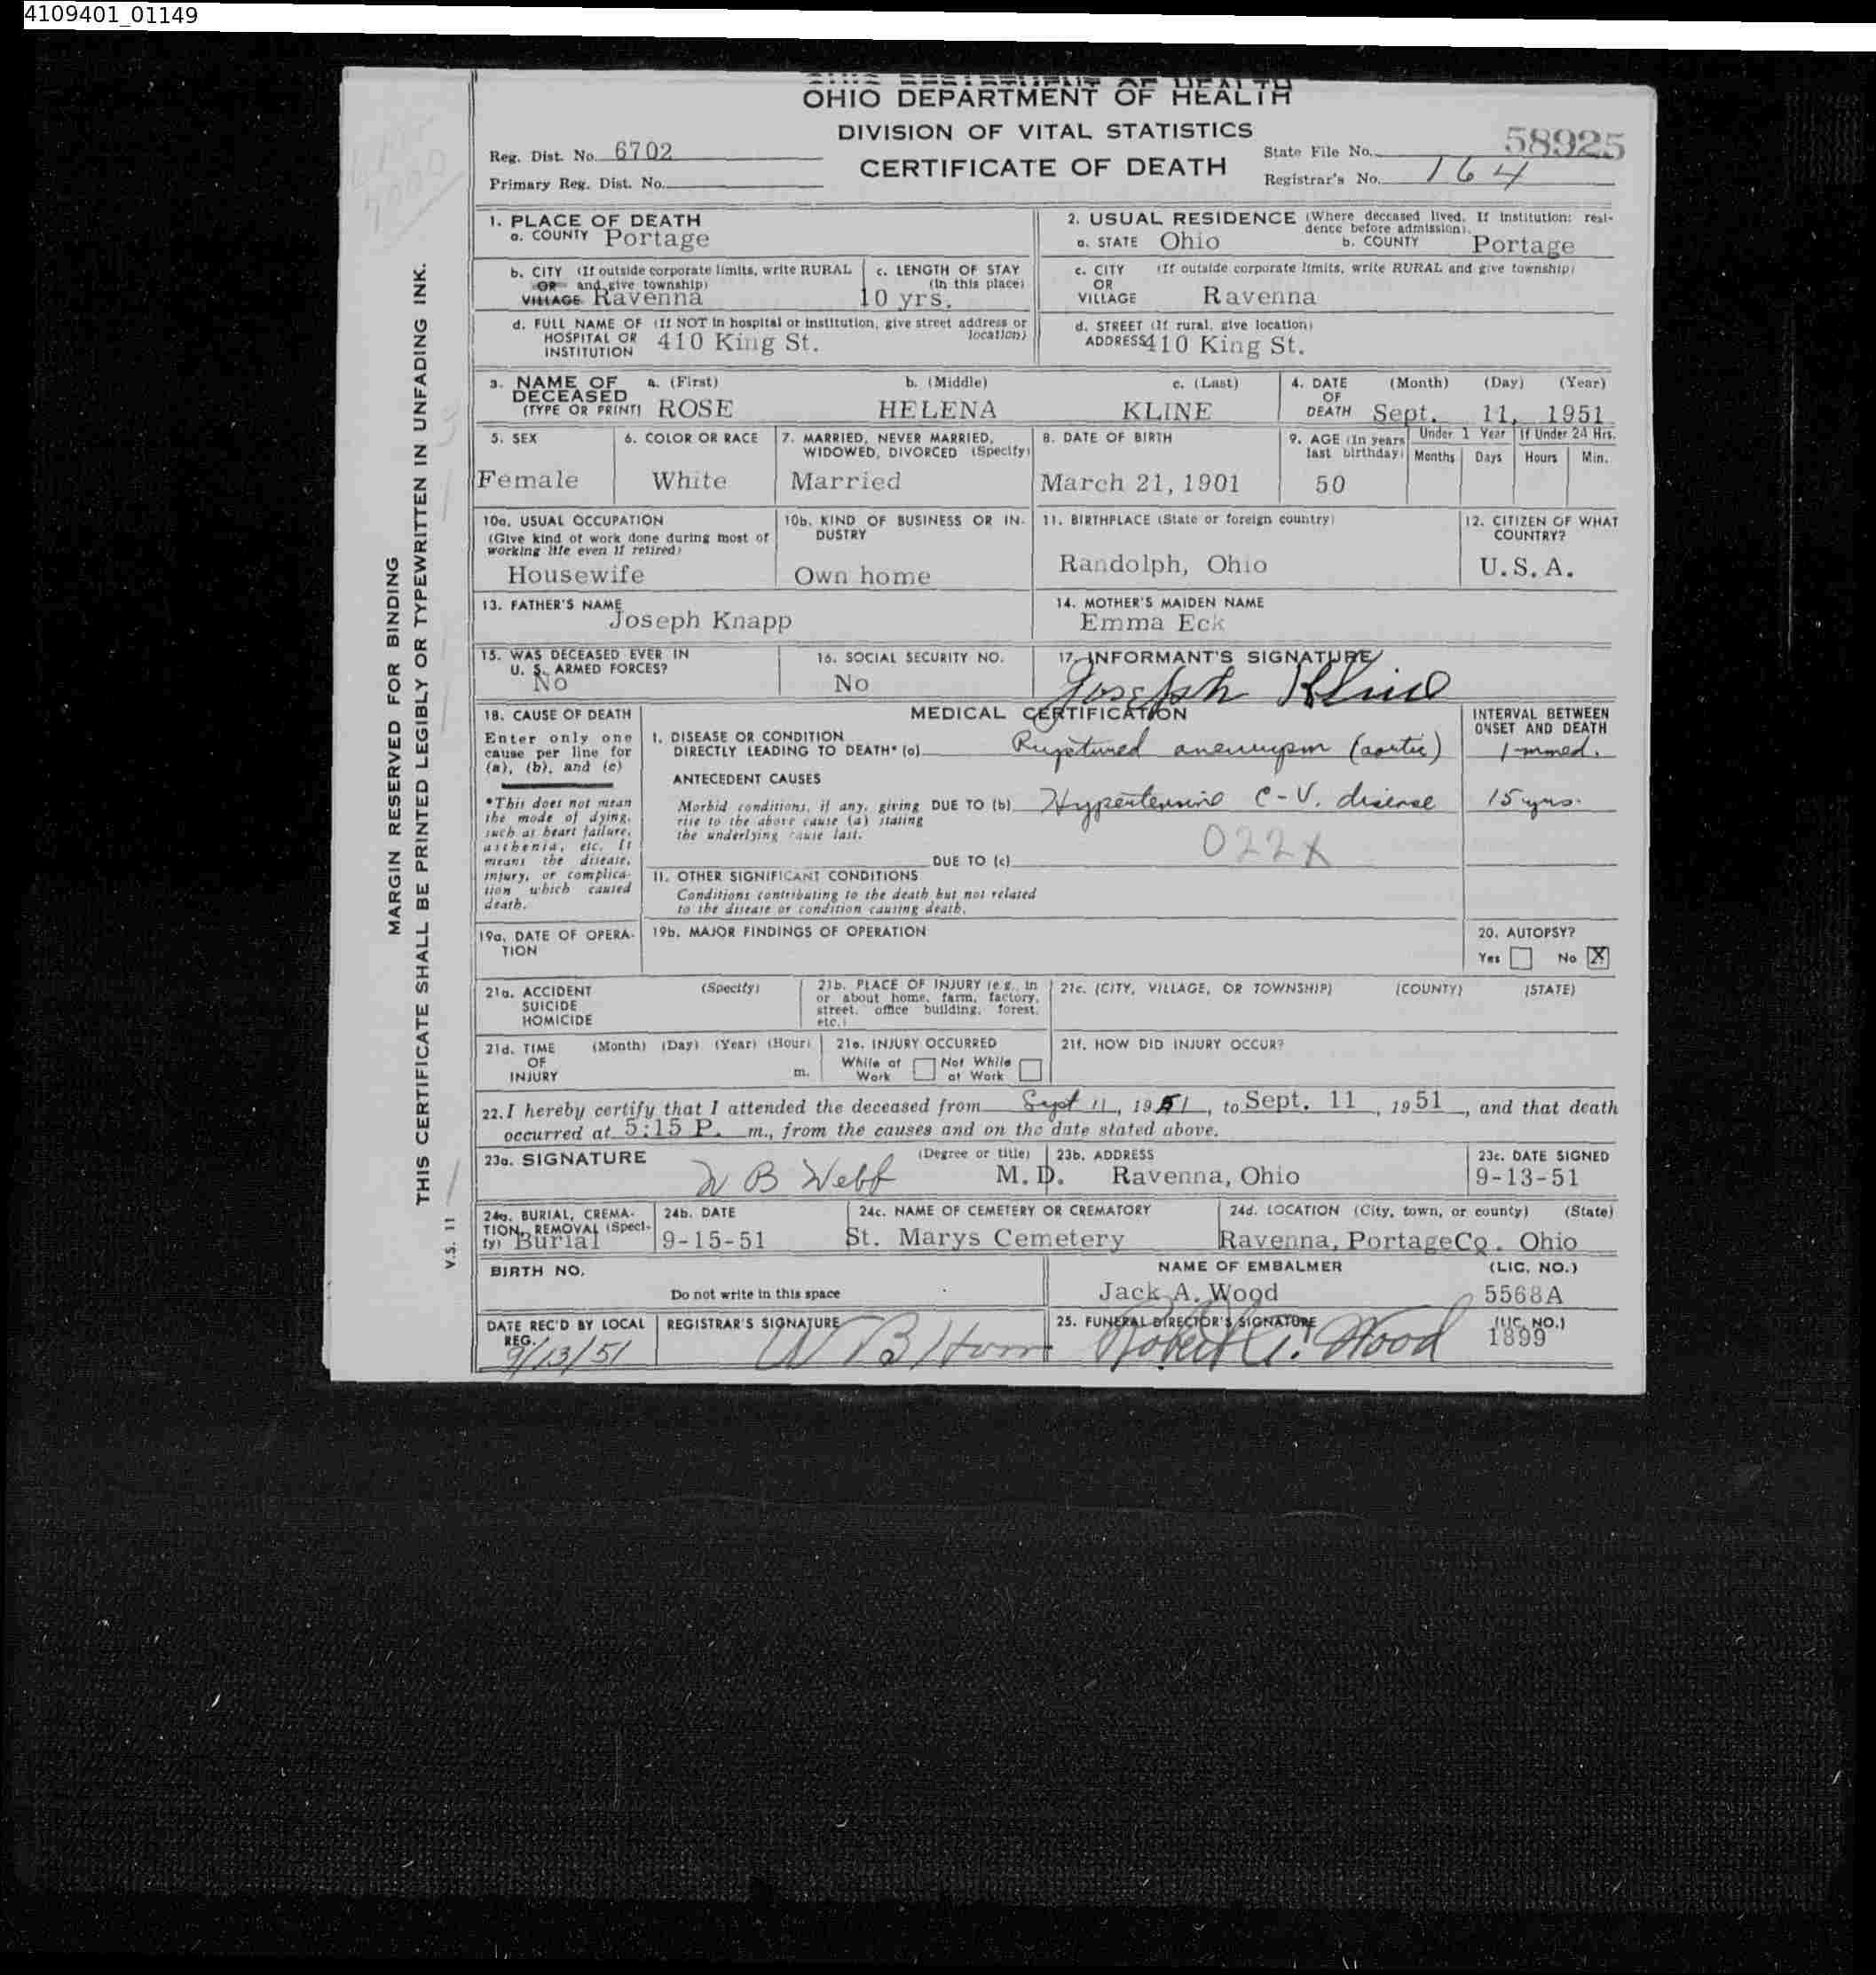 4109401_01149
OHIO DEPARTMENT OF HEALTH
DIVISION OF VITAL STATISTICS
CERTIFICATE OF DEATH
Reg. Dist. No. 6702
Primary Reg. Dist. No.
State File No. 58925
Registrar's No. 164
MARGIN RESERVED FOR BINDING
THIS CERTIFICATE SHALL BE PRINTED LEGIBLY OR TYPEWRITTEN IN UNFADING INK.
V.S. 11
1. PLACE OF DEATH
a. COUNTY Portage
b. CITY (If outside corporate limits, write RURAL
OR and give township)
VILLAGE Ravenna
c. LENGTH OF STAY
(In this place)
10 yrs.
d. FULL NAME OF (If NOT in hospital or institution, give street address or
HOSPITAL OR location)
INSTITUTION 410 King St.
2. USUAL RESIDENCE (Where deceased lived. If institution: resi-
dence before admission).
a. STATE Ohio b. COUNTY Portage
c. CITY (If outside corporate limits, write RURAL and give township)
OR
VILLAGE Ravenna
d. STREET (If rural, give location)
ADDRESS 410 King St.
3. NAME OF DECEASED (TYPE OR PRINT) a. (First) b. (Middle) c. (Last)
ROSE HELENA KLINE
4. DATE OF DEATH (Month) (Day) (Year)
Sept. 11, 1951
5. SEX
Female
6. COLOR OR RACE
White
7. MARRIED, NEVER MARRIED,
WIDOWED, DIVORCED (Specify)
Married
8. DATE OF BIRTH
March 21, 1901
9. AGE (In years
last birthday)
50
Under 1 Year
Months Days
If Under 24 Hrs.
Hours Min.
10a. USUAL OCCUPATION
(Give kind of work done during most of
working life even if retired)
Housewife
10b. KIND OF BUSINESS OR IN-
DUSTRY
Own home
11. BIRTHPLACE (State or foreign country)
Randolph, Ohio
12. CITIZEN OF WHAT
COUNTRY?
U.S.A.
13. FATHER'S NAME
Joseph Knapp
14. MOTHER'S MAIDEN NAME
Emma Eck
15. WAS DECEASED EVER IN
U. S. ARMED FORCES?
No
16. SOCIAL SECURITY NO.
No
17. INFORMANT'S SIGNATURE
Joseph Kline
18. CAUSE OF DEATH
Enter only one
cause per line for
(a), (b), and (c)
*This does not mean
the mode of dying,
such as heart failure,
asthenia, etc. It
means the disease,
injury, or complica-
tion which caused
death.
MEDICAL CERTIFICATION
INTERVAL BETWEEN
ONSET AND DEATH
I. DISEASE OR CONDITION
DIRECTLY LEADING TO DEATH* (a) Ruptured aneurysm (aortic) Immed.
ANTECEDENT CAUSES
Morbid conditions, if any, giving DUE TO (b) Hypertensive C-V. disease 15 yrs.
rise to the above cause (a) stating
the underlying cause last.
022X
DUE TO (c)
II. OTHER SIGNIFICANT CONDITIONS
Conditions contributing to the death but not related
to the disease or condition causing death.
19a. DATE OF OPERA-
TION
19b. MAJOR FINDINGS OF OPERATION
20. AUTOPSY?
Yes No X
21a. ACCIDENT (Specify)
SUICIDE
HOMICIDE
21b. PLACE OF INJURY (e.g., in
or about home, farm, factory,
street, office building, forest,
etc.)
21c. (CITY, VILLAGE, OR TOWNSHIP) (COUNTY) (STATE)
21d. TIME (Month) (Day) (Year) (Hour)
OF
INJURY m.
21e. INJURY OCCURRED
While at Not While
Work at Work
21f. HOW DID INJURY OCCUR?
22. I hereby certify that I attended the deceased from Sept 11, 1951, to Sept. 11, 1951, and that death
occurred at 5:15 P. m., from the causes and on the date stated above.
23a. SIGNATURE (Degree or title)
W B Webb M.D.
23b. ADDRESS
Ravenna, Ohio
23c. DATE SIGNED
9-13-51
24a. BURIAL, CREMA-
TION, REMOVAL (Speci-
fy) Burial
24b. DATE
9-15-51
24c. NAME OF CEMETERY OR CREMATORY
St. Marys Cemetery
24d. LOCATION (City, town, or county) (State)
Ravenna, PortageCo. Ohio
BIRTH NO.
Do not write in this space
NAME OF EMBALMER (LIC. NO.)
Jack A. Wood 5568A
DATE REC'D BY LOCAL
REG.
9/13/51
REGISTRAR'S SIGNATURE
W B
25. FUNERAL DIRECTOR'S SIGNATURE (LIC. NO.)
Robert A. Wood 1899